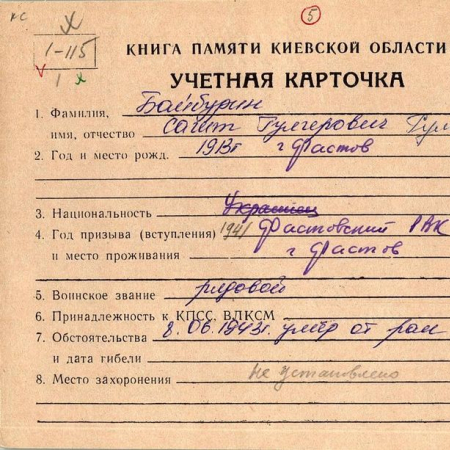 кс
х
5
1-115
1
КНИГА ПАМЯТИ КИЕВСКОЙ ОБЛАСТИ
УЧЕТНАЯ КАРТОЧКА
1. Фамилия, Байбурин
имя, отчество Сагит Гулгерович Гул
2. Год и место рожд. 1913г г Фастов
3. Национальность Украинец
4. Год призыва (вступления) 1941 Фастовский РВК
и место проживания г Фастов
5. Воинское звание рядовой
6. Принадлежность к КПСС, ВЛКСМ
7. Обстоятельства 8.06.1943г. умер от ран
и дата гибели
8. Место захоронения не установлено